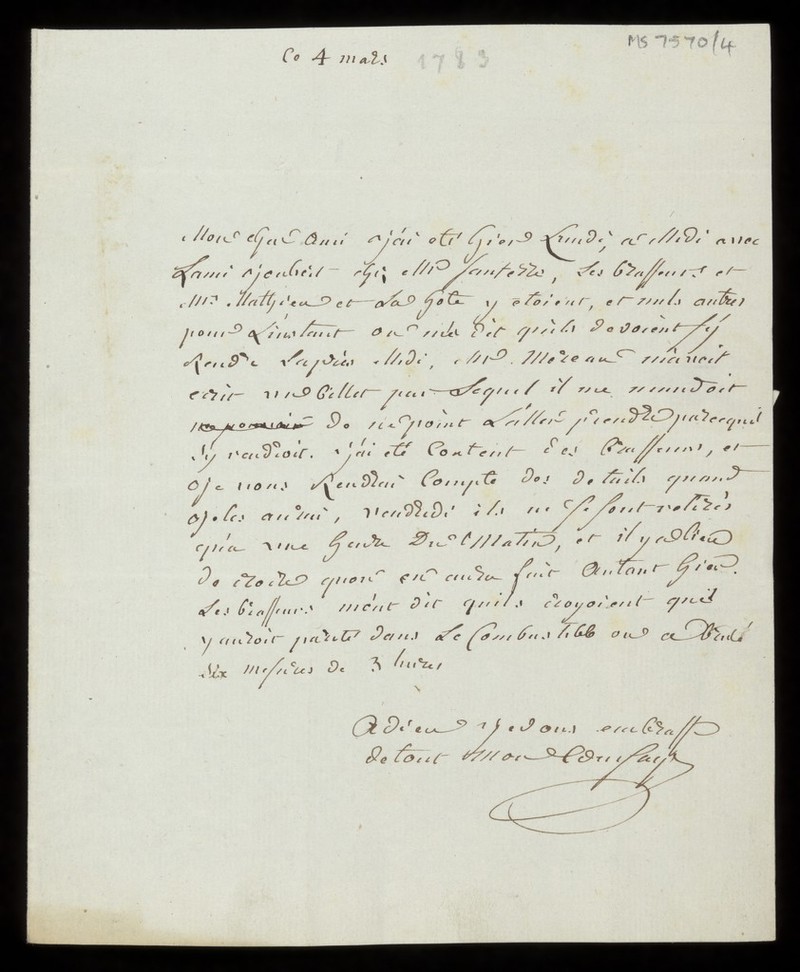 MS 7570/4
Ce 4 mars 1783
Mon cher Ami j'ai eté hier Lundi, a Midi avec
Lami joubert chez Mr Santerre, Les brasseurs et
Mrs Mathieu et La hote y etoient, et nuls autres
pour L'instant on m'a dit qu'ils devoient s'y
Rendre Laprès Midi, Mr Moreau m'avoit
ecrit un billet par Lequel il me mandoit
de ne point L'aller prendre parcequil
s'y rendroit. j'ai eté Content des brasseurs, et
je vous Rendrai Compte des details quand
je les aurai, vendredi ils ne se sont retirés
qu'a une heure Du Matin, et il y a lieu
de croire quon en aura fait Autant hier.
Les brasseurs m'ont dit quils croyoient quil
y auroit parité dans Le Combustible on a brulé
dix mesures de 3 livres
Adieu je vous embrasse
de tout mon